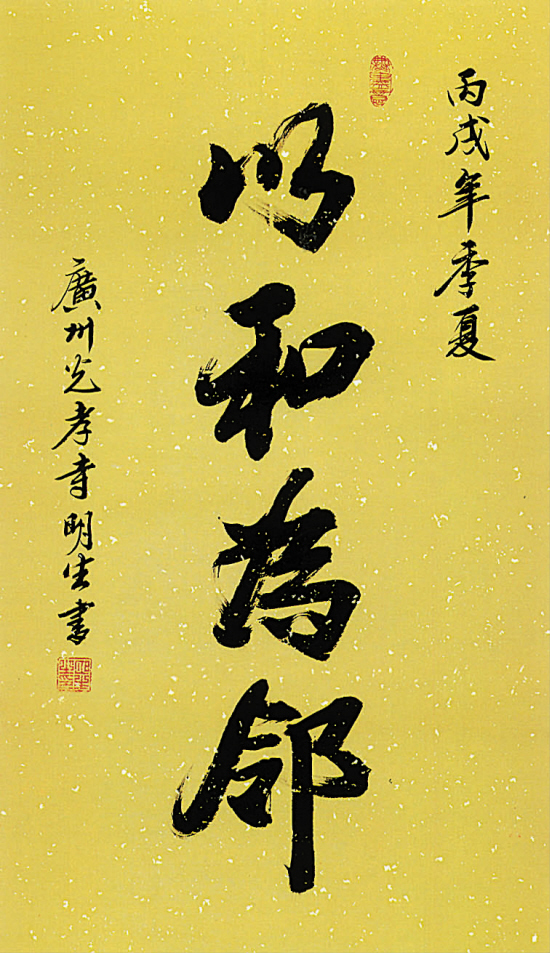 丙戌年季夏
以和為邻
廣州光孝寺明生書